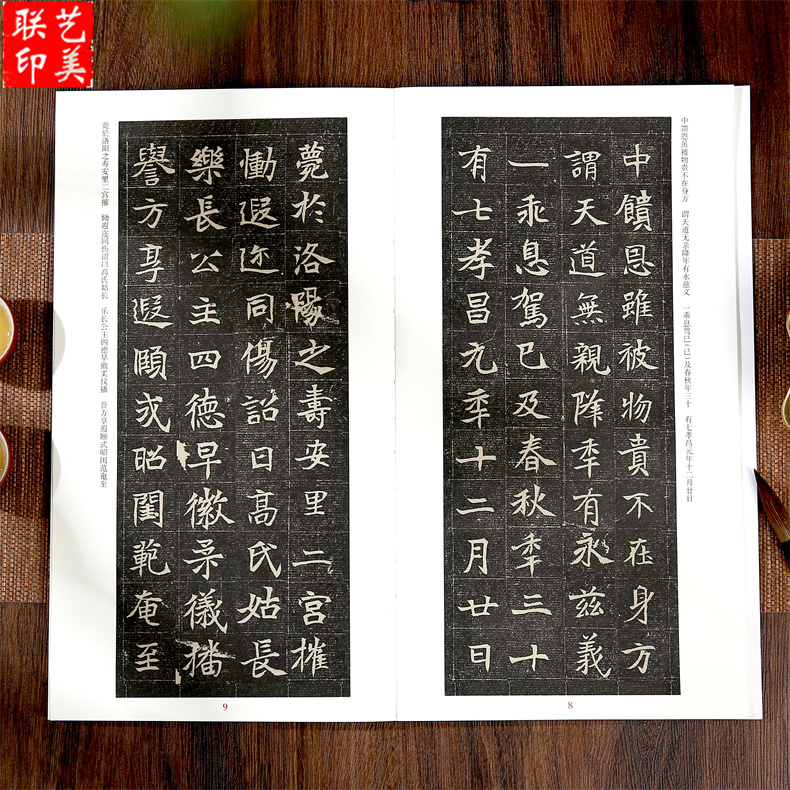 艺美
联印
中馈恩虽被物贵不在身方　谓天道无亲降年有永兹义　一乖息驾已(己)及春秋年三十　有七孝昌元年十二月廿日
中饋恩雖被物貴不在身方
謂天道無親降年有永兹義
一乖息駕已及春秋年三十
有七孝昌元年十二月廿日
8
薨於洛陽之壽安里二宮摧
慟遐迩同傷詔曰高氏姑長
樂長公主四德早徽柔儀播
譽方享遐頤式昭閨範奄至
薨於洛阳之寿安里二宫摧　恸遐迩同伤诏曰高氏姑长　乐长公主四德早徽柔仪播　誉方享遐颐式昭闺范奄至
9